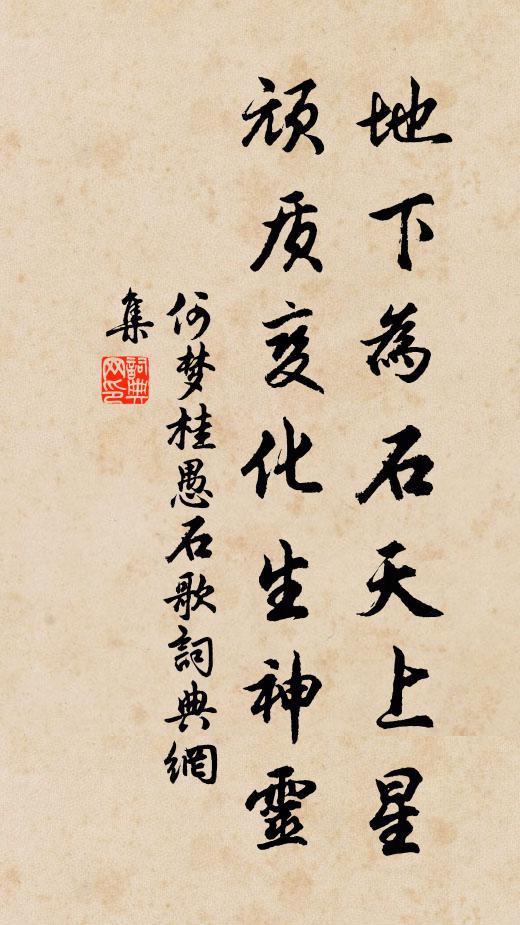 地下為石天上星
頑质变化生神靈
何梦桂愚石歌詞典網
集
詞典
网印